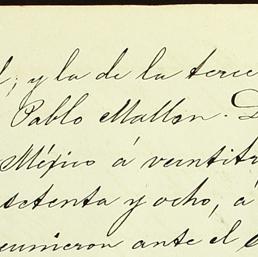 l; y la de la terce
Pablo Mallon. D
México á veintitr
setenta y ocho, á
eunieron ante el